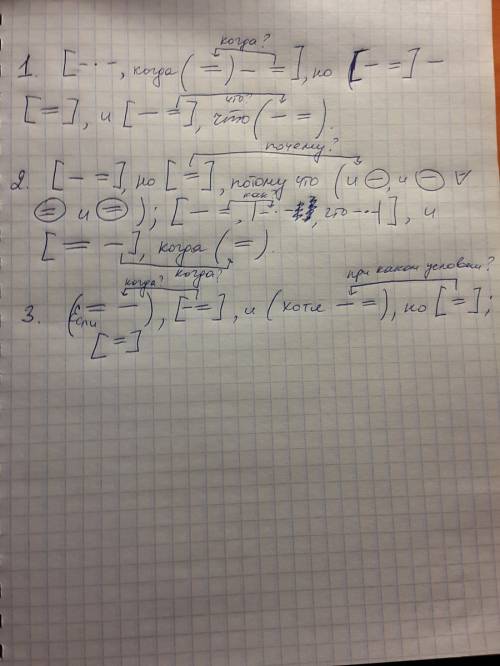 когда?
1. [-·-, когда (=) - =], но [- =] -
что?
[=], и [- =], что (- =).
почему?
2. [- =], но [=], потому что (и -, и - ∀
= и =); [- =, |-·-, что -·-|], и
как?
[= -], когда (=).
когда? когда? при каком условии?
3. (если = -), [- =], и (хотя - =), но [=];
[=]